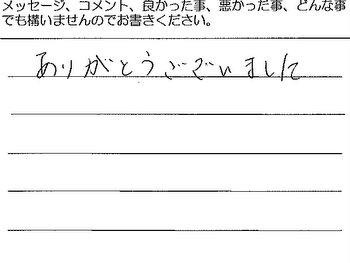 メッセージ、コメント、良かった事、悪かった事、どんな事
でも構いませんのでお書きください。
ありがとうございました